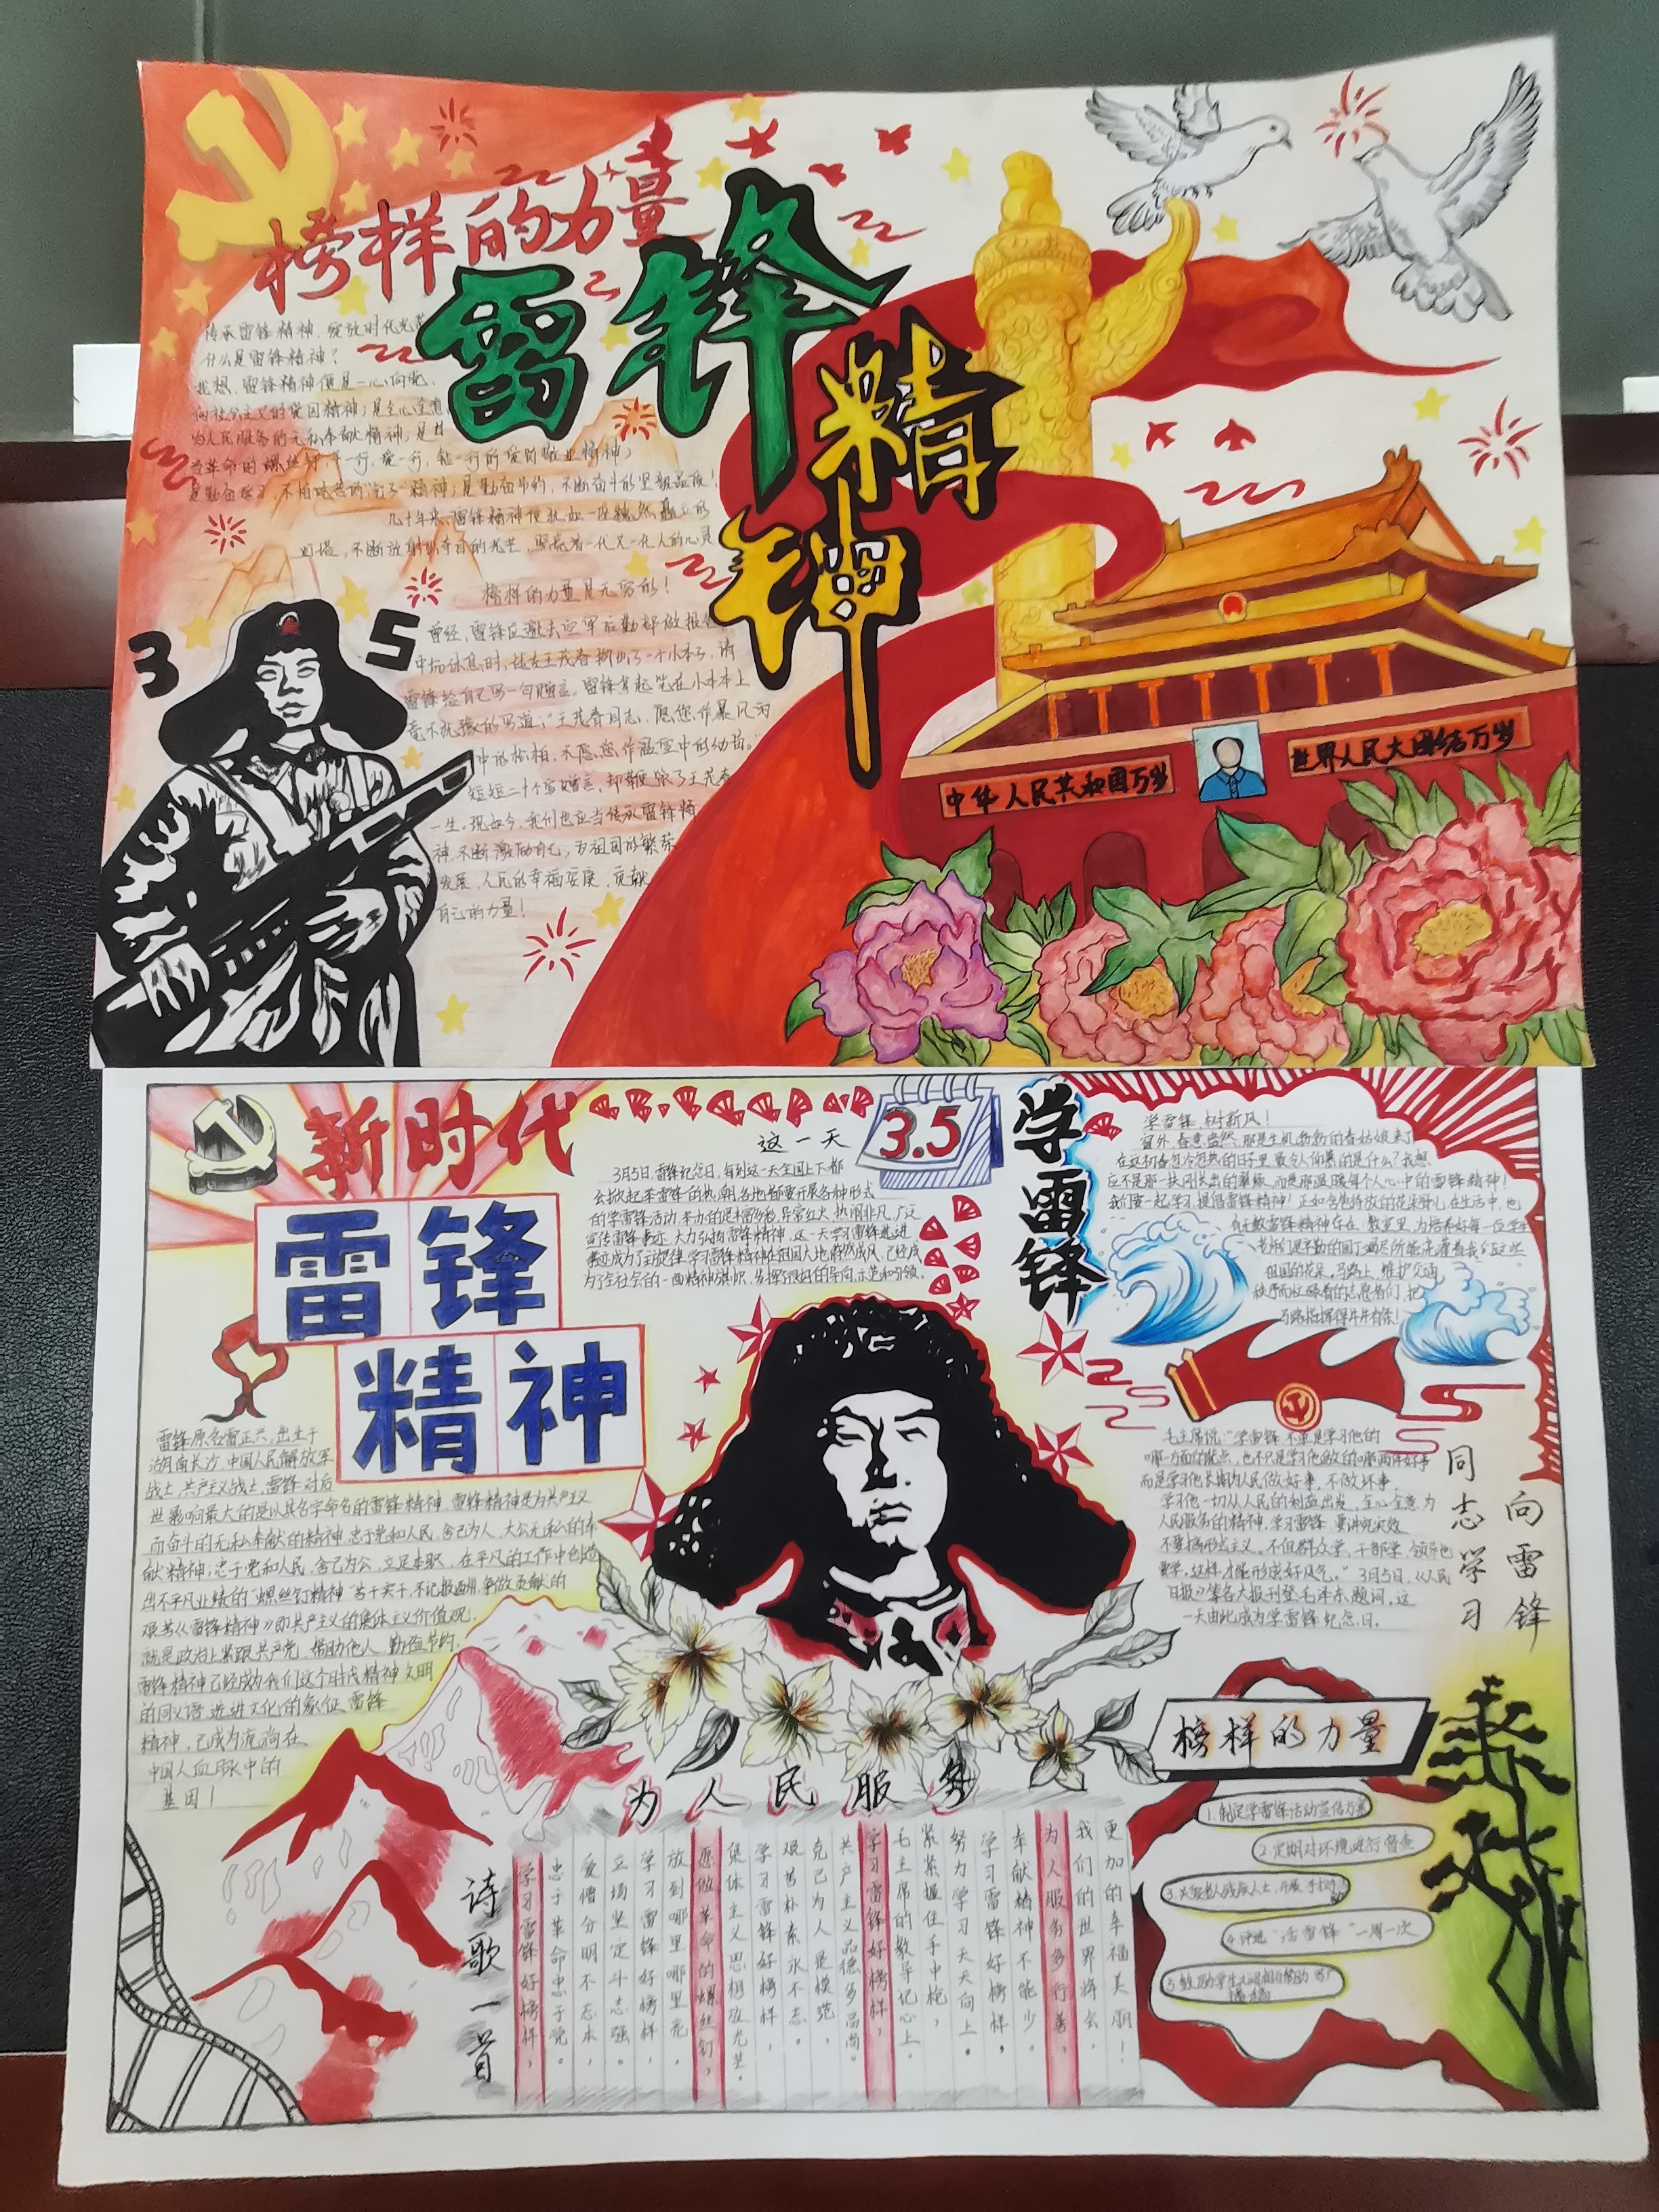 榜样的力量
雷锋
精
神
传承雷锋精神，绽放时代光芒
什么是雷锋精神？
我想，雷锋精神便是一心向党、
向社会主义的爱国精神；是全心全意
为人民服务的无私奉献精神；是甘
当革命的螺丝钉，干一行，爱一行，钻一行的爱岗敬业精神；
是勤奋学习，不怕吃苦的"钉子"精神；是勤俭节约，不断奋斗的坚毅品质！
几十年来，雷锋精神便犹如一座巍然矗立的
灯塔，不断放射出夺目的光芒，照亮着一代又一代人的心灵
榜样的力量是无穷的！
曾经，雷锋应邀去空军后勤部做报告
中场休息时，战友王茂春掏出了一个小本子，请
雷锋给自己写一句赠言，雷锋拿起笔在小本本上
毫不犹豫的写道："王茂春同志，愿您作暴风雨
中的松柏，不愿您作温室中的幼苗。"
短短二十个字赠言，却鞭策了王茂春
一生，现如今，我们也应当传承雷锋精
神，不断激励自己，为祖国的繁荣
发展，人民的幸福安康，贡献
自己的力量！
3 5
中华人民共和国万岁
世界人民大团结万岁
新时代
雷锋
精神
这一天
3.5
3月5日，雷锋纪念日，每到这一天全国上下都
会掀起学雷锋的热潮，各地都要开展各种形式
的学雷锋活动，举办的是丰富多彩，异常红火，热闹非凡，广泛
宣传雷锋事迹，大力弘扬雷锋精神，这一天学习雷锋先进
事迹成为了主旋律，学习雷锋精神在祖国大地蔚然成风，已经成
为了全社会的一面精神旗帜，发挥了很好的导向、示范和引领。
学雷锋
学雷锋，树新风！
窗外，春意盎然，那是生机勃勃的春姑娘来了
在这初春忽冷忽热的日子里，最令人仰慕的是什么？我想，
应不是那一抹刚长出的翠绿，而是那温暖每个人心中的雷锋精神！
祖国的花朵，马路上，维护交通
雷锋原名雷正兴，出生于
湖南长沙，中国人民解放军
战士，共产主义战士，雷锋对后
世影响最大的是以其名字命名的雷锋精神，雷锋精神是为共产主义
而奋斗的无私奉献的精神，忠于党和人民，舍己为人，大公无私的奉
献精神；忠于党和人民，舍己为公，立足本职，在平凡的工作中创造
出不平凡业绩的"螺丝钉精神"苦干实干，不计报酬，争做贡献的
艰苦《雷锋精神》即共产主义的集体主义价值观，
就是政治上紧跟共产党，帮助他人，勤俭节约，
雷锋精神已经成为我们这个时代精神文明
的同义语、先进文化的象征，雷锋
精神，已成为流淌在
中国人血脉中的
基因！
毛主席说："学雷锋不单是学习他的
哪一方面的优点，也不只是学习他做的哪两件好事
而是学习他长期为人民做好事，不做坏事，
学习他一切从人民的利益出发，全心全意为
人民服务的精神，学习雷锋要讲究实效
不要搞形式主义，不但群众学，干部学，领导也
要学，这样才能形成好风气。"3月5日，《人民
日报》等各大报刊登毛泽东题词，这
一天由此成为学雷锋纪念日。
向雷锋
同志学习
为人民服务
榜样的力量
1.制定学雷锋活动宣传方案
2.定期对环境进行督查
4.评选"活雷锋"一周一次
诗歌一首
学习雷锋好榜样，
忠于革命忠于党。
爱憎分明不忘本，
立场坚定斗志强。
学习雷锋好榜样，
放到哪里哪里亮
愿做革命的螺丝钉，
集体主义思想放光芒。
学习雷锋好榜样，
艰苦朴素永不忘。
克己为人是模范，
共产主义品德多高尚。
学习雷锋好榜样，
毛主席的教导记心上。
紧紧握住手中枪，
努力学习天天向上。
学习雷锋好榜样，
奉献精神不能少。
为人服务多行善，
我们的世界将会，
更加的幸福美丽！